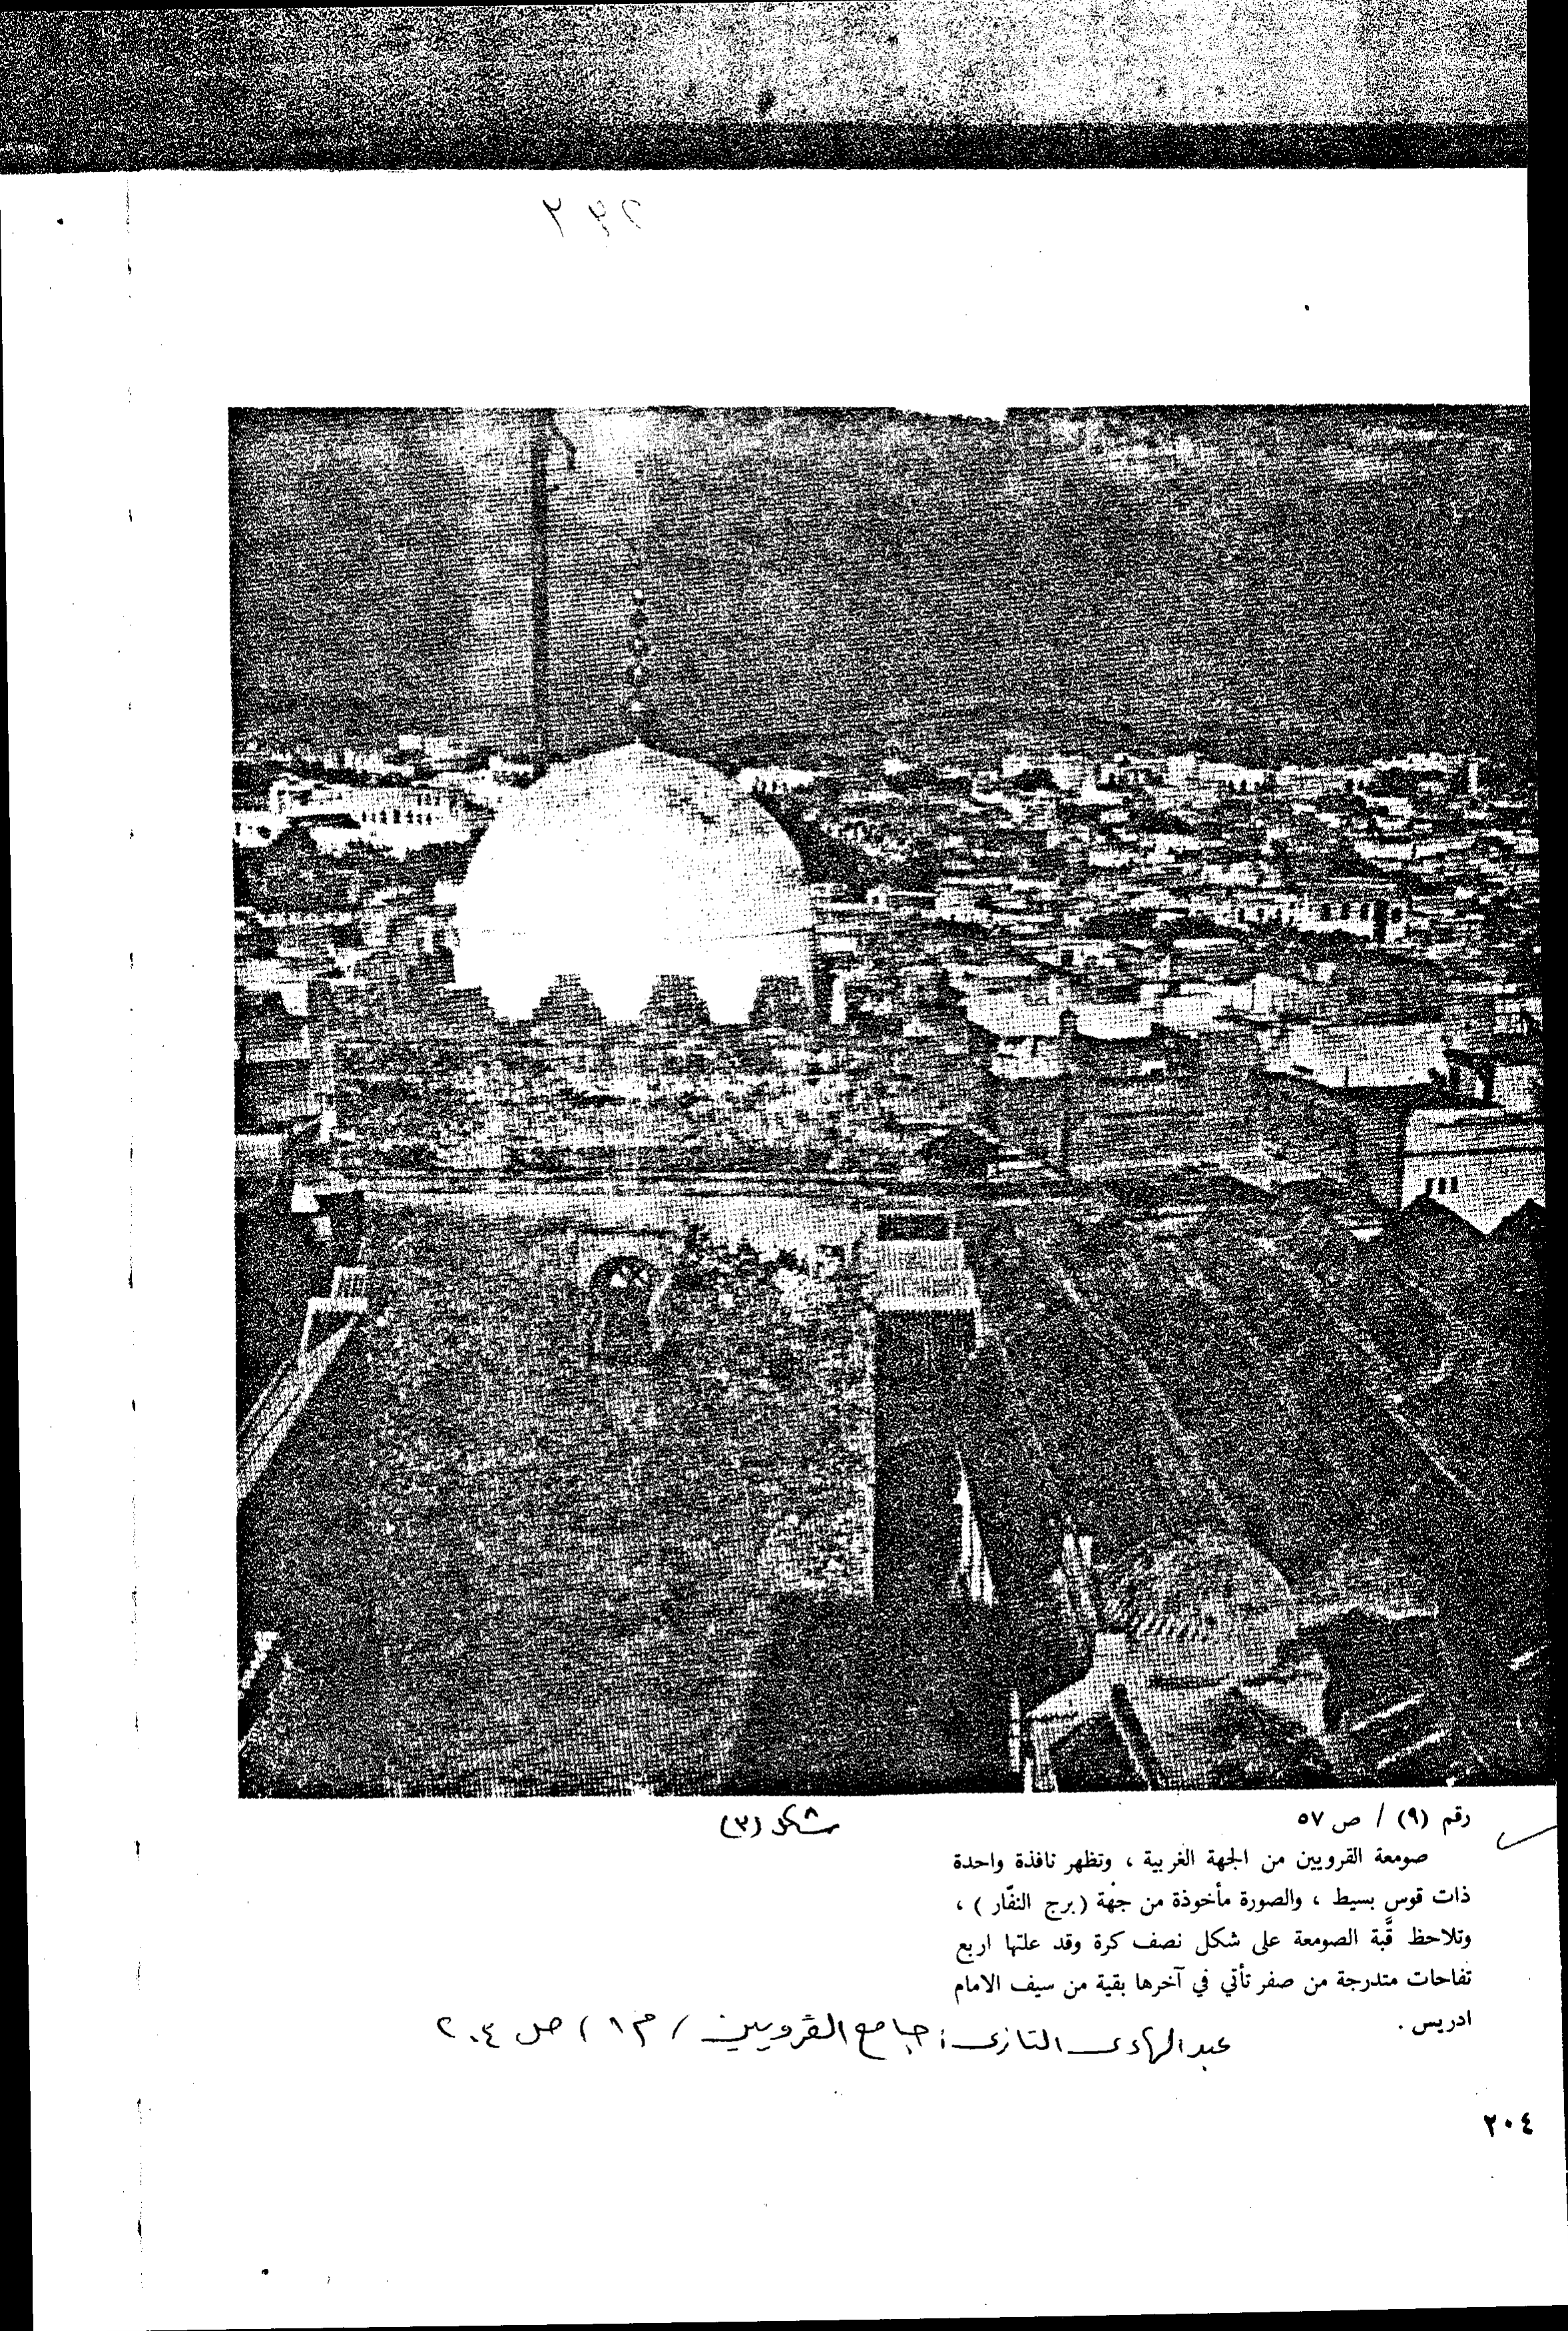 رقم (٩) / ص ٥٧
شكل (٣)
صومعة القرويين من الجهة الغربية ، وتظهر نافذة واحدة
ذات قوس بسيط ، والصورة مأخوذة من جهة ( برج النفّار ) ،
وتلاحظ قبَّة الصومعة على شكل نصف كرة وقد علتها اربع
تفاحات متدرجة من صفر تأتي في آخرها بقية من سيف الامام
ادريس .
عبد الهادى التازى : جامع القرويين / م ١ / ص ٢٠٤
٢٠٤